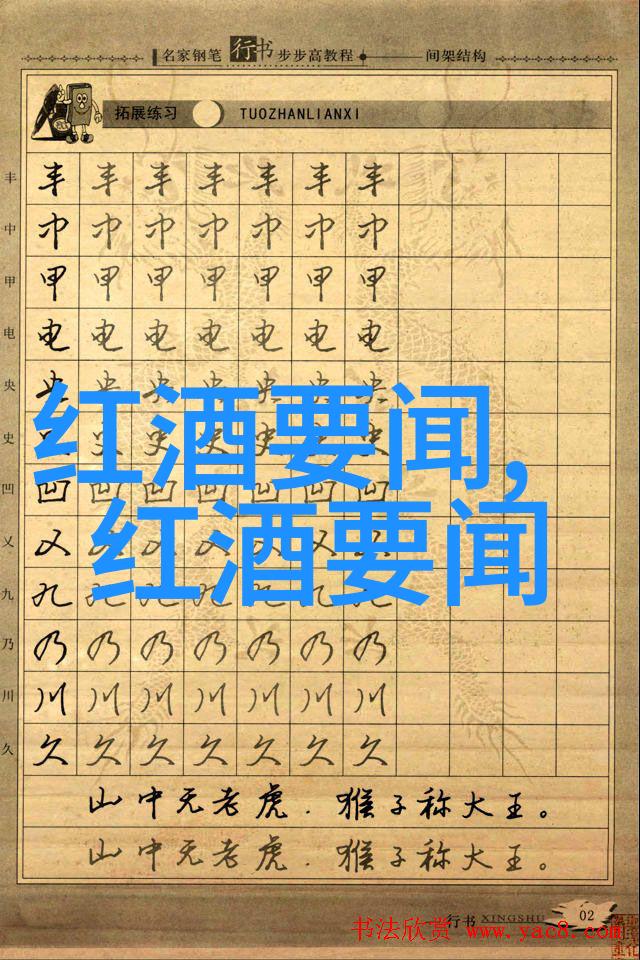 名家钢笔行书步步高教程 间架结构
拓展练习 TUOZHANLIANXI
丰 丰 丰 丰 丰 丰 丰 丰
中 中 中 中 中 中 中 中
甲 甲 甲 甲 甲 甲 甲 甲
电 电 电 电 电 电 电 电
央 央 央 央 央 央 央 央
红酒要闻,
史 史 史 史 史 史 史 史
凹 凹 凹 凹 凹 凹 凹 凹
红酒要闻
乂 乂 乂 乂 乂 乂 乂 乂
九 九 九 九 九 九 九 九
乃 乃 乃 乃 乃 乃 乃 乃
川 川 川 川 川 川 川 川
久 久 久 久 久 久 久 久
山中无老虎.猴子称大王。
山中无老虎.猴子称大王。
行书 XINGSHU 02
书法欣赏 www.yac8.com